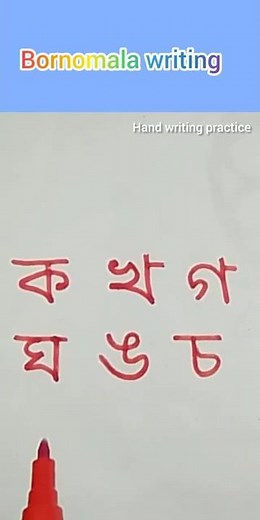 Bornomala writing
Hand writing practice
ক খ গ
ঘ ঙ চ